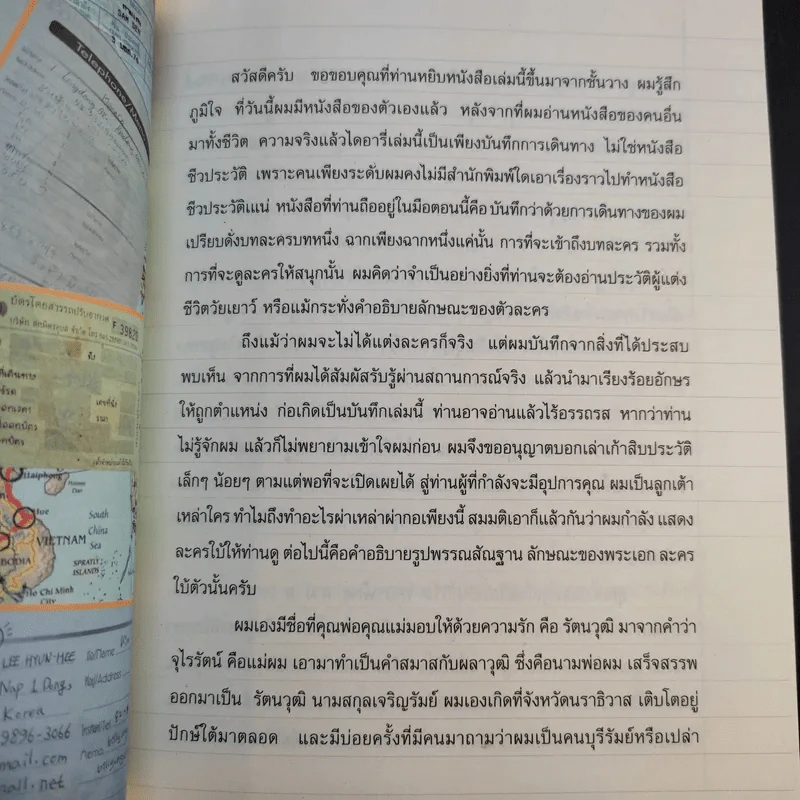 Telephone/
บัตรโดยสารรถปรับอากาศ
F 39826
ถึง
เลขที่นั่ง
Haiphong
Hue
South
China
Sea
VIETNAM
SPRATLY
ISLANDS
Ho Chi Minh
City
LEE HYUN-HEE
Korea
9896-3066
mail.com
สวัสดีครับ ขอขอบคุณที่ท่านหยิบหนังสือเล่มนี้ขึ้นมาจากชั้นวาง ผมรู้สึก
ภูมิใจ ที่วันนี้ผมมีหนังสือของตัวเองแล้ว หลังจากที่ผมอ่านหนังสือของคนอื่น
มาทั้งชีวิต ความจริงแล้วไดอารี่เล่มนี้เป็นเพียงบันทึกการเดินทาง ไม่ใช่หนังสือ
ชีวประวัติ เพราะคนเพียงระดับผมคงไม่มีสำนักพิมพ์ใดเอาเรื่องราวไปทำหนังสือ
ชีวประวัติแน่ หนังสือที่ท่านถืออยู่ในมือตอนนี้คือ บันทึกว่าด้วยการเดินทางของผม
เปรียบดั่งบทละครบทหนึ่ง ฉากเพียงฉากหนึ่งแค่นั้น การที่จะเข้าถึงบทละคร รวมทั้ง
การที่จะดูละครให้สนุกนั้น ผมคิดว่าจำเป็นอย่างยิ่งที่ท่านจะต้องอ่านประวัติผู้แต่ง
ชีวิตวัยเยาว์ หรือแม้กระทั่งคำอธิบายลักษณะของตัวละคร
ถึงแม้ว่าผมจะไม่ได้แต่งละครก็จริง แต่ผมบันทึกจากสิ่งที่ได้ประสบ
พบเห็น จากการที่ผมได้สัมผัสรับรู้ผ่านสถานการณ์จริง แล้วนำมาเรียงร้อยอักษร
ให้ถูกตำแหน่ง ก่อเกิดเป็นบันทึกเล่มนี้ ท่านอาจอ่านแล้วไร้อรรถรส หากว่าท่าน
ไม่รู้จักผม แล้วก็ไม่พยายามเข้าใจผมก่อน ผมจึงขออนุญาตบอกเล่าเก้าสิบประวัติ
เล็กๆ น้อยๆ ตามแต่พอที่จะเปิดเผยได้ สู่ท่านผู้ที่กำลังจะมีอุปการคุณ ผมเป็นลูกเต้า
เหล่าใคร ทำไมถึงทำอะไรผ่าเหล่าผ่ากอเพียงนี้ สมมติเอาก็แล้วกันว่าผมกำลัง แสดง
ละครใบ้ให้ท่านดู ต่อไปนี้คือคำอธิบายรูปพรรณสัณฐาน ลักษณะของพระเอก ละคร
ใบ้ตัวนั้นครับ
ผมเองมีชื่อที่คุณพ่อคุณแม่มอบให้ด้วยความรัก คือ รัตนวุฒิ มาจากคำว่า
จุไรรัตน์ คือแม่ผม เอามาทำเป็นคำสมาสกับผลาวุฒิ ซึ่งคือนามพ่อผม เสร็จสรรพ
ออกมาเป็น รัตนวุฒิ นามสกุลเจริญรัมย์ ผมเองเกิดที่จังหวัดนราธิวาส เติบโตอยู่
ปักษ์ใต้มาตลอด และมีบ่อยครั้งที่มีคนมาถามว่าผมเป็นคนบุรีรัมย์หรือเปล่า